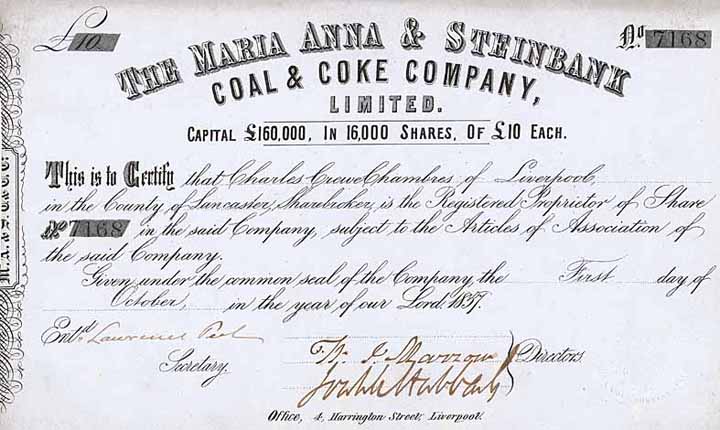 £10
No 7168
THE MARIA ANNA & STEINBANK
COAL & COKE COMPANY,
LIMITED.
CAPITAL £160,000, IN 16,000 SHARES, OF £10 EACH.
This is to Certify that Charles Crewe Chambres of Liverpool,
in the County of Lancaster, Sharebroker, is the Registered Proprietor of Share
No 7168 in the said Company, subject to the Articles of Association of
the said Company.
Given under the common seal of the Company, the First day of
October, in the year of our Lord 1857.
Entd. Lawrence Peel
Secretary.
Directors
Office, 4, Harrington Street, Liverpool.